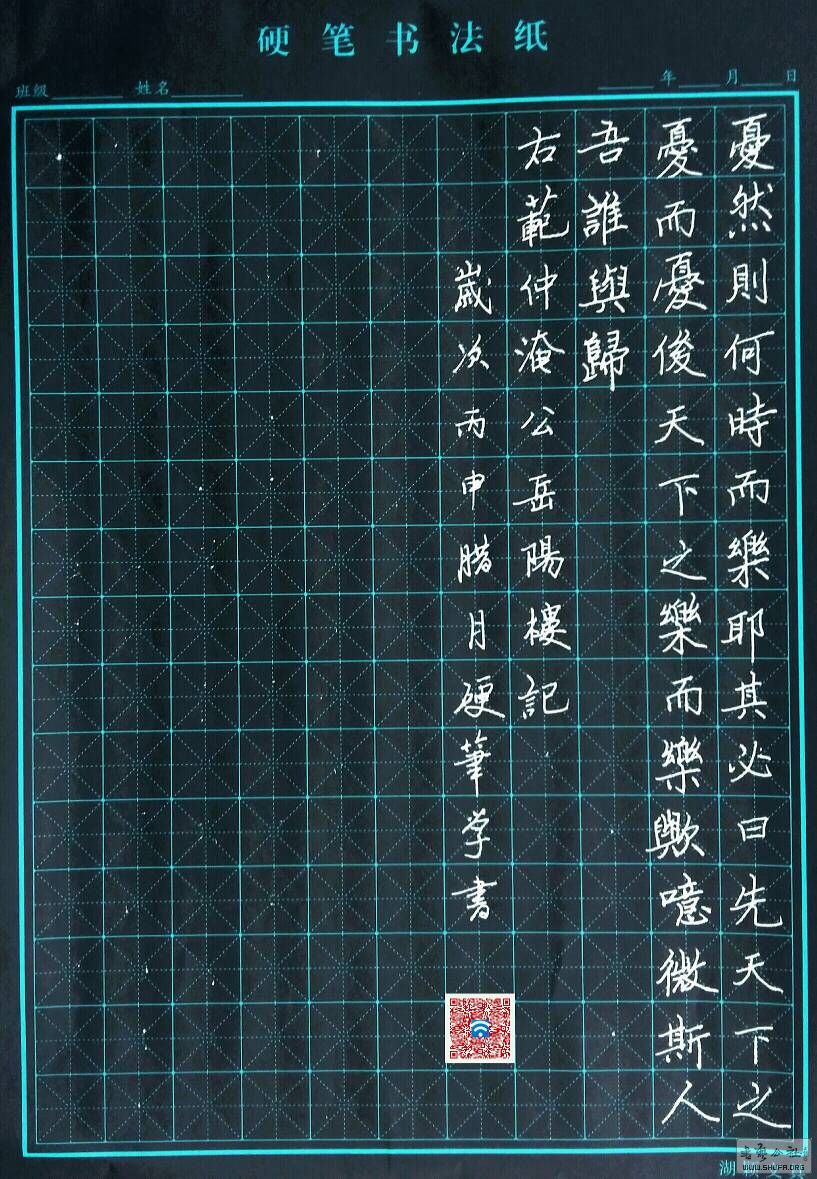 硬笔书法纸
班级 姓名 年 月 日
憂然則何時而樂耶其必曰先天下之
憂而憂後天下之樂而樂歟噫微斯人
吾誰與歸
右範仲淹公岳陽樓記
歲次丙申腊月硬筆学書
WWW.SHUFA.ORG